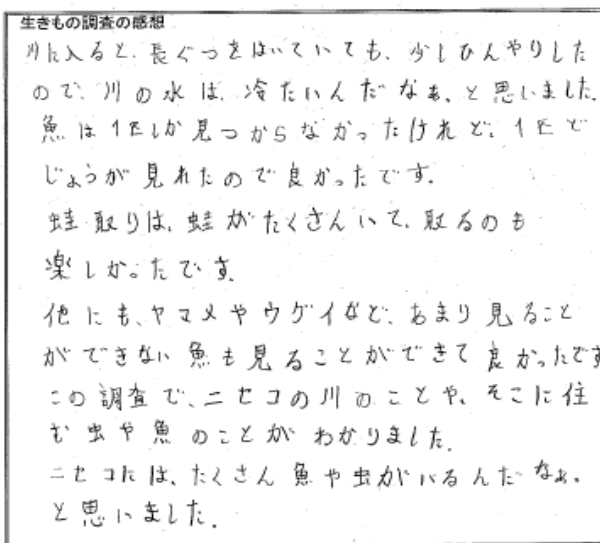 生きもの調査の感想
川に入ると、長ぐつをはいていても、少しひんやりした
ので、川の水は、冷たいんだなぁ、と思いました。
魚は1匹しか見つからなかったけれど、1匹ど
じょうが見れたので良かったです。
蛙取りは、蛙がたくさんいて、取るのも
楽しかったです。
他にも、ヤマメやウグイなど、あまり見ること
ができない魚も見ることができて良かったです
この調査で、ニセコの川のことや、そこに住
む虫や魚のことがわかりました。
ニセコには、たくさん魚や虫がいるんだなぁ。
と思いました。